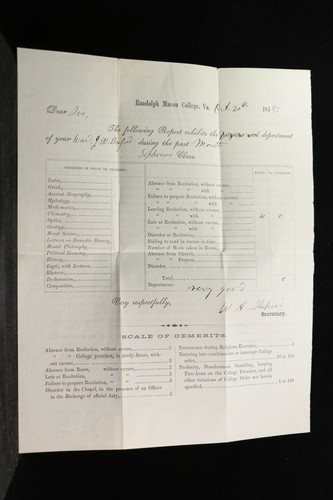 Randolph Macon College, Va. Oct. 20th, 18
Dear Sir,
The following Report exhibits the progress and deportment
of your Ward J W during the past Month
Class
Latin,
Greek,
Ancient Geography,
Mythology,
Mathematics,
Chemistry,
Optics,
Geology,
Moral Science,
Lectures on Domestic Slavery,
Mental Philosophy,
Political Economy,
History,
Logic, with Lectures,
Rhetoric,
Declamation,
Composition,
Absence from Recitation, without excuse,
" " " with "
Failure to prepare Recitation, without excuse,
" " " with "
Leaving Recitation, without excuse,
" " with "
Late at Recitation, without excuse,
" " with "
Disorder at Recitation,
Failing to stand in excuse in time,
Number of Meals taken in Room,
Absence from Church,
" " Prayers,
Disorder,
Total,
Deportment: very good
Very respectfully,
Secretary.
SCALE OF DEMERITS.
Absence from Recitation, without excuse, 3
" " College premises, in study hours, without excuse, 3
Absence from Room, without excuse, 2
Late at Recitation, " " 2
Failure to prepare Recitation, " " 2
Disorder in the Chapel, in the presence of an Officer
in the Exchange of official duty, 5
Irreverence during Religious Exercises, 5
Entering into combinations to interrupt College
order, 10 to 100
Profanity, Drunkenness, Gambling, keeping
Fire-Arms on the College Premises, and all
other violations of College Order not herein
specified, 1 to 100